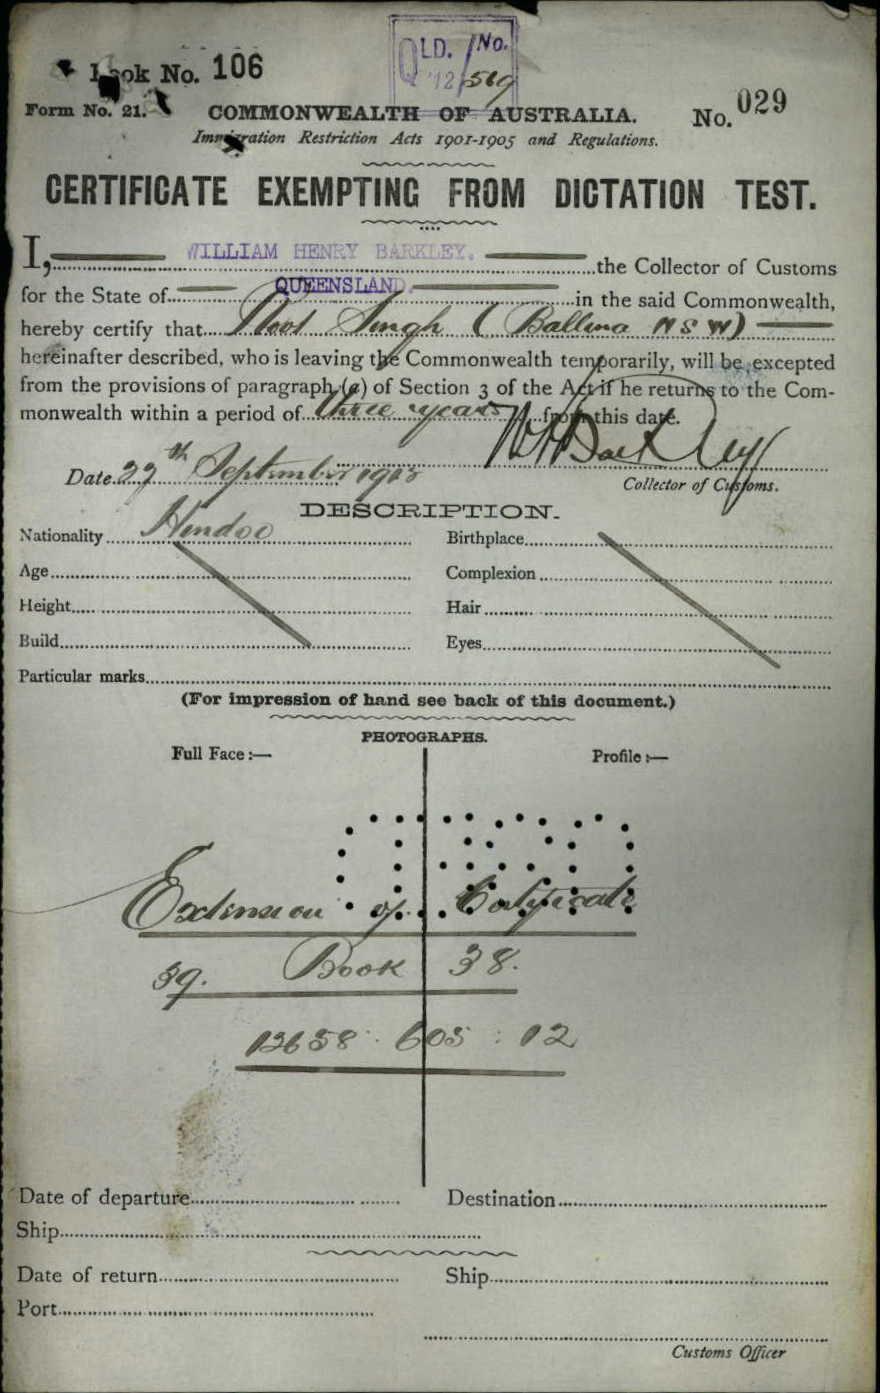 QLD. No.
12/519
Book No. 106
Form No. 21.
COMMONWEALTH OF AUSTRALIA.
No. 029
Immigration Restriction Acts 1901-1905 and Regulations.
CERTIFICATE EXEMPTING FROM DICTATION TEST.
I, WILLIAM HENRY BARKLEY. the Collector of Customs
for the State of QUEENSLAND. in the said Commonwealth,
hereby certify that Singh (Ballina N S W)
hereinafter described, who is leaving the Commonwealth temporarily, will be excepted
from the provisions of paragraph (a) of Section 3 of the Act if he returns to the Com-
monwealth within a period of three years from this date.
W H Barkley
Date September
Collector of Customs.
DESCRIPTION.
Nationality Hindoo
Birthplace
Age
Complexion
Height
Hair
Build
Eyes
Particular marks
(For impression of hand see back of this document.)
PHOTOGRAPHS.
Full Face :—
Profile :—
Extension of Certificate
39. Book 38.
605 : 12
Date of departure
Destination
Ship
Date of return
Ship
Port
Customs Officer